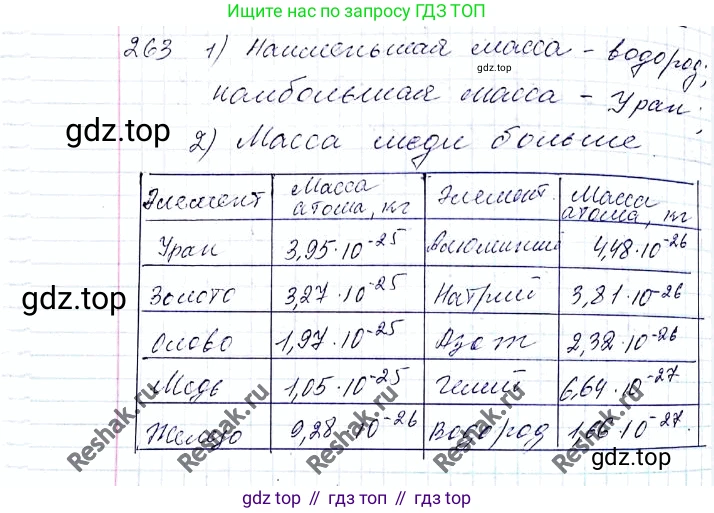 Ищите нас по запросу ГДЗ ТОП
263 1) Наименьшая масса – водород;
gdz.top
наибольшая масса – Уран;
gdz.top
2) Масса меди больше
Элемент Масса атома, кг Элемент. Масса атома, кг
Уран 3,95·10⁻²⁵ Алюминий 4,48·10⁻²⁶
gdz.top
Золото 3,27·10⁻²⁵ Натрий 3,81·10⁻²⁶
Олово 1,97·10⁻²⁵ Азот 2,32·10⁻²⁶
Медь 1,05·10⁻²⁵ Гелий 6,64·10⁻²⁷
Железо 9,28·10⁻²⁶ Водород 1,66·10⁻²⁷.
Reshak.ru
Reshak.ru
Reshak.ru
Reshak.ru
gdz.top
gdz top // гдз топ // gdz top